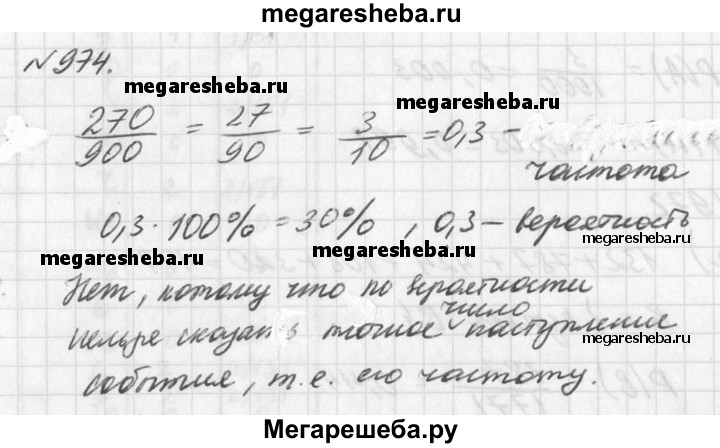 megaresheba.ru
№974.
megaresheba.ru
megaresheba.ru
270/900 = 27/90 = 3/10 = 0,3 –
частота
0,3 · 100% = 30% , 0,3 – вероятность
megaresheba.ru
megaresheba.ru
Нет, потому что по вероятности
нельзя сказать точное число наступление
megaresheba.ru
megaresheba.ru
события, т.е. его частоту.
Мегарешеба.ру